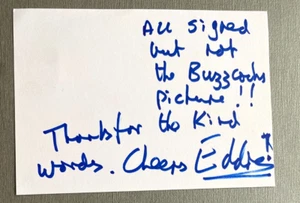 All signed
but not
the Buzzcocks
picture!!
Thanks for the Kind
words. Cheers Eddie!